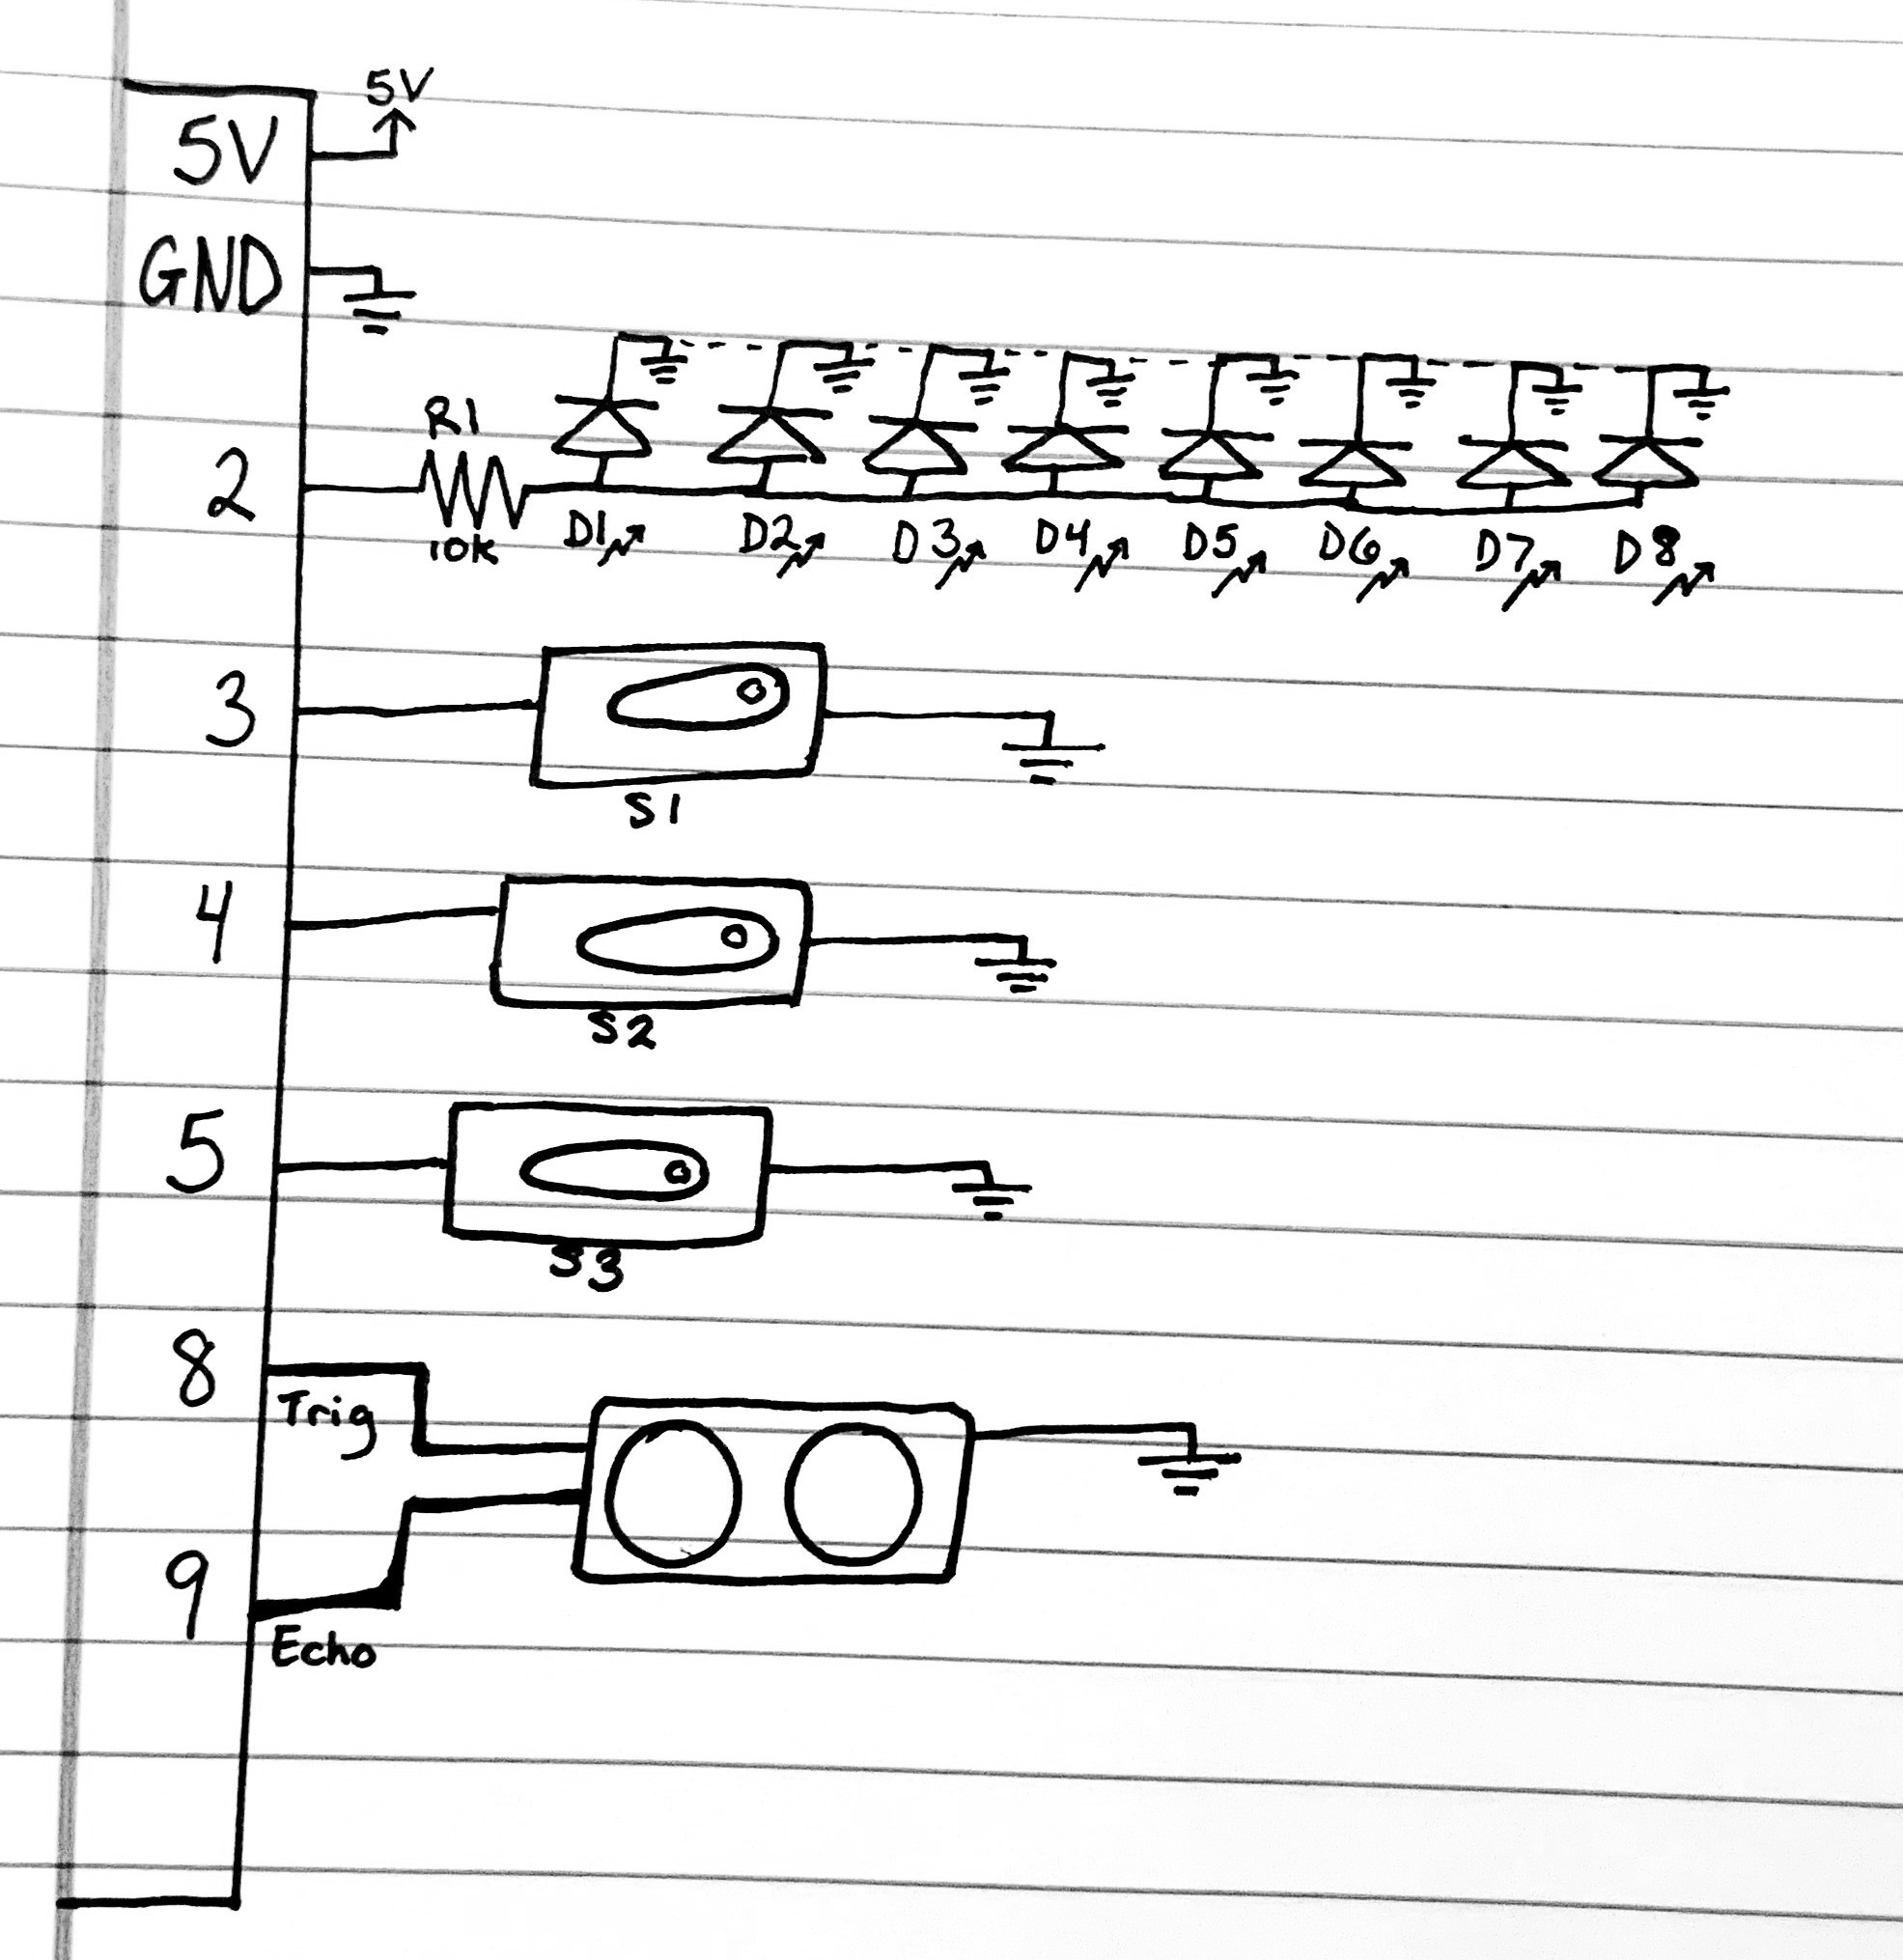 5V
5V
GND
R1
2
10K
D1 D2 D3 D4 D5 D6 D7 D8
3
S1
4
S2
5
S3
8
Trig
9
Echo